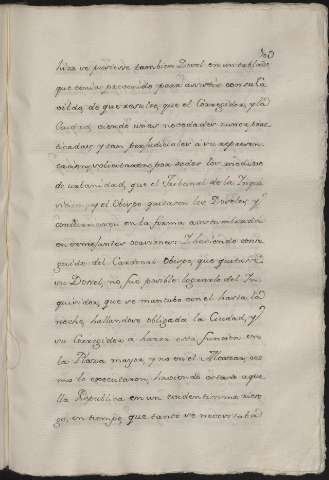 hizo se pusiesse tambien Dosel en un tablado
que tenia prevenido para assistir con su Ca
vildo, de que resulto, que el Corregidor, y la
Ciudad, viendo unas novedades nunca prac
ticadas y tan perjudiciales a su represen
tacion, solicitaron por todos los medios
de urbanidad, que el Tribunal de la Inqui
sicion, y el Obispo quitasen los Doseles, y
concurriesen en la forma acostumbrada
en semejantes ocasiones: I haviendo conse
guido del Cardenal Obispo, que quitase
su Dosel, no fue posible lograrlo del In
quisidor, que se mantubo con el hasta la
noche, hallandose obligada la Ciudad, y
su Corregidor a hazer esta funcion en
la Plaza mayor, y no en el Alcazar, co
mo lo executaron, haciendo estara aque
lla Republica en un evidentissimo ries
go, en tiempo, que tanto se necesitaba